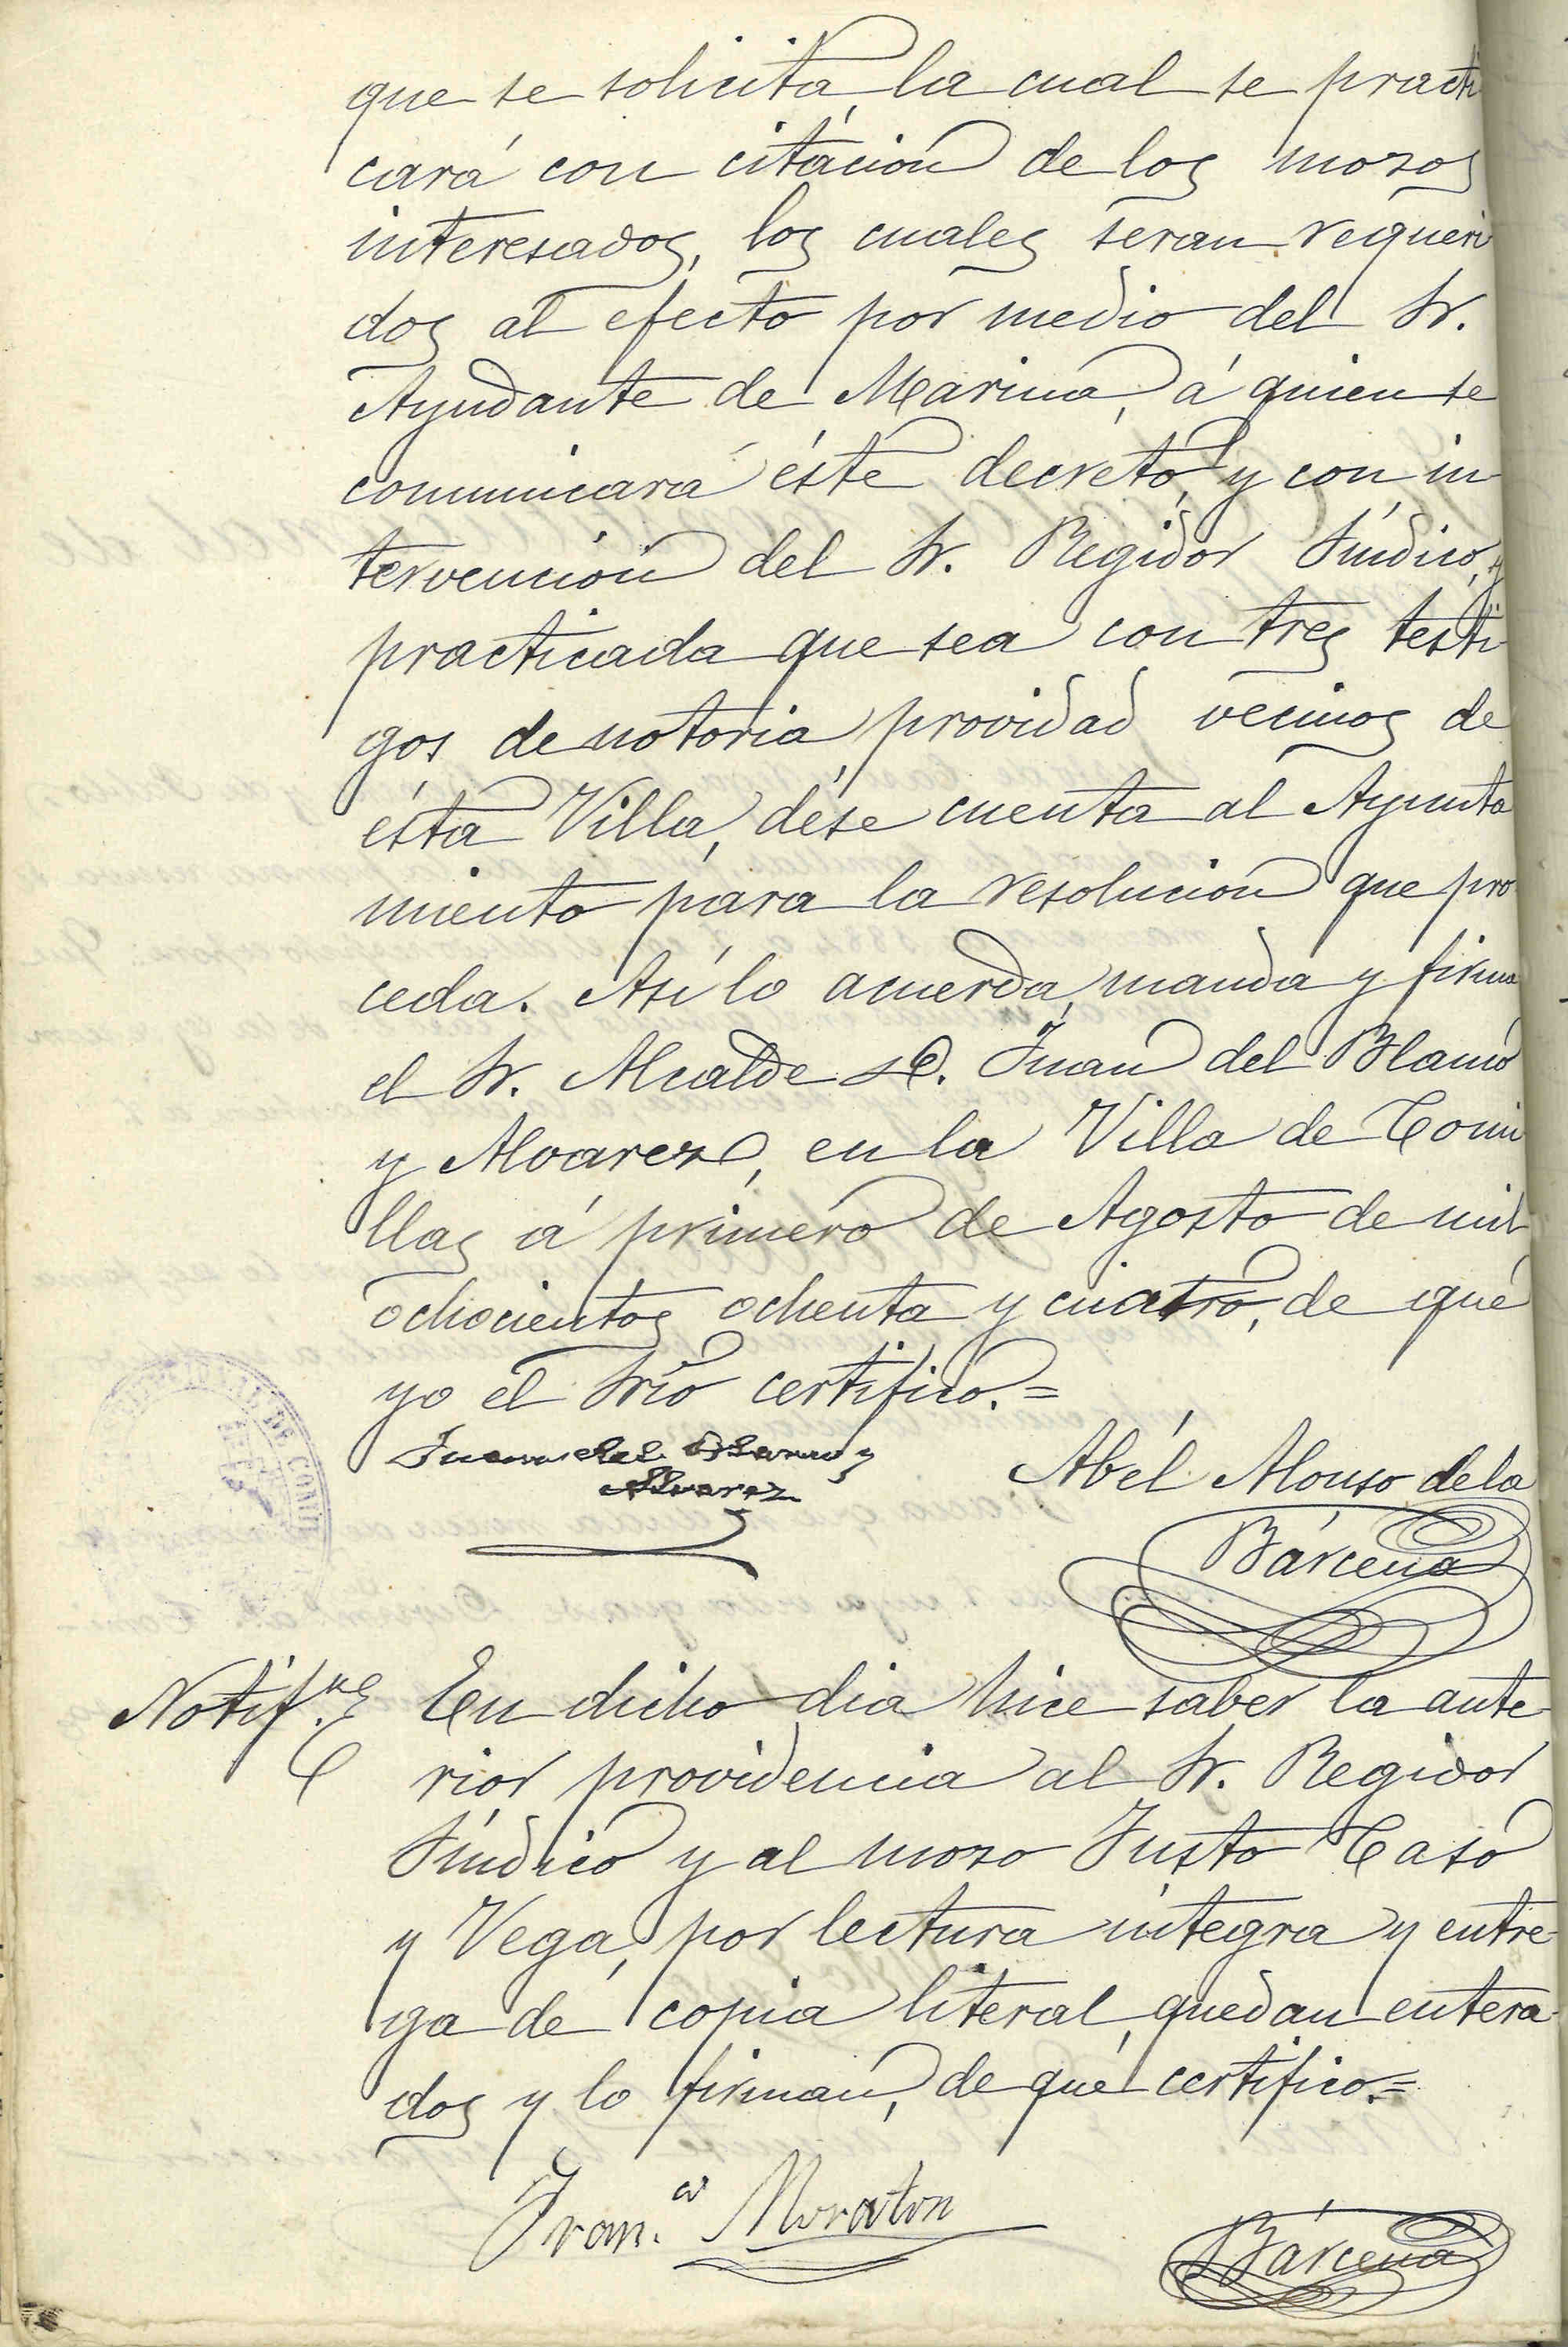 que se solicita, la cual se practi
cará con citación de los mozos
interesados, los cuales seran requeri
dos al efecto por medio del Sr.
Ayudante de Marina, á quien se
comunicará éste decreto, y con in
tervención del Sr. Regidor Síndico, y
practicada que sea con tres testi
gos de notoria providad vecinos de
ésta Villa, dése cuenta al Ayunta
miento para la resolución que pro
ceda. Así lo acuerda, manda y firma
el Sr. Alcalde D. Juan del Blanco
y Alvarez, en la Villa de Comi
llas á primero de Agosto de mil
ochocientos ochenta y cuatro, de que
yo el Srio certifico.=
Juan del Blanco y
Alvarez
Abél Alonso de la
Bárcena
Notif.ne
En dicho dia hice saber la ante
rior providencia al Sr. Regidor
Síndico y al mozo Justo Caso
y Vega, por lectura íntegra y entre
ga de copia literal, quedan entera
dos y lo firman, de que certifico.=
Fran.co Moraton
Bárcena